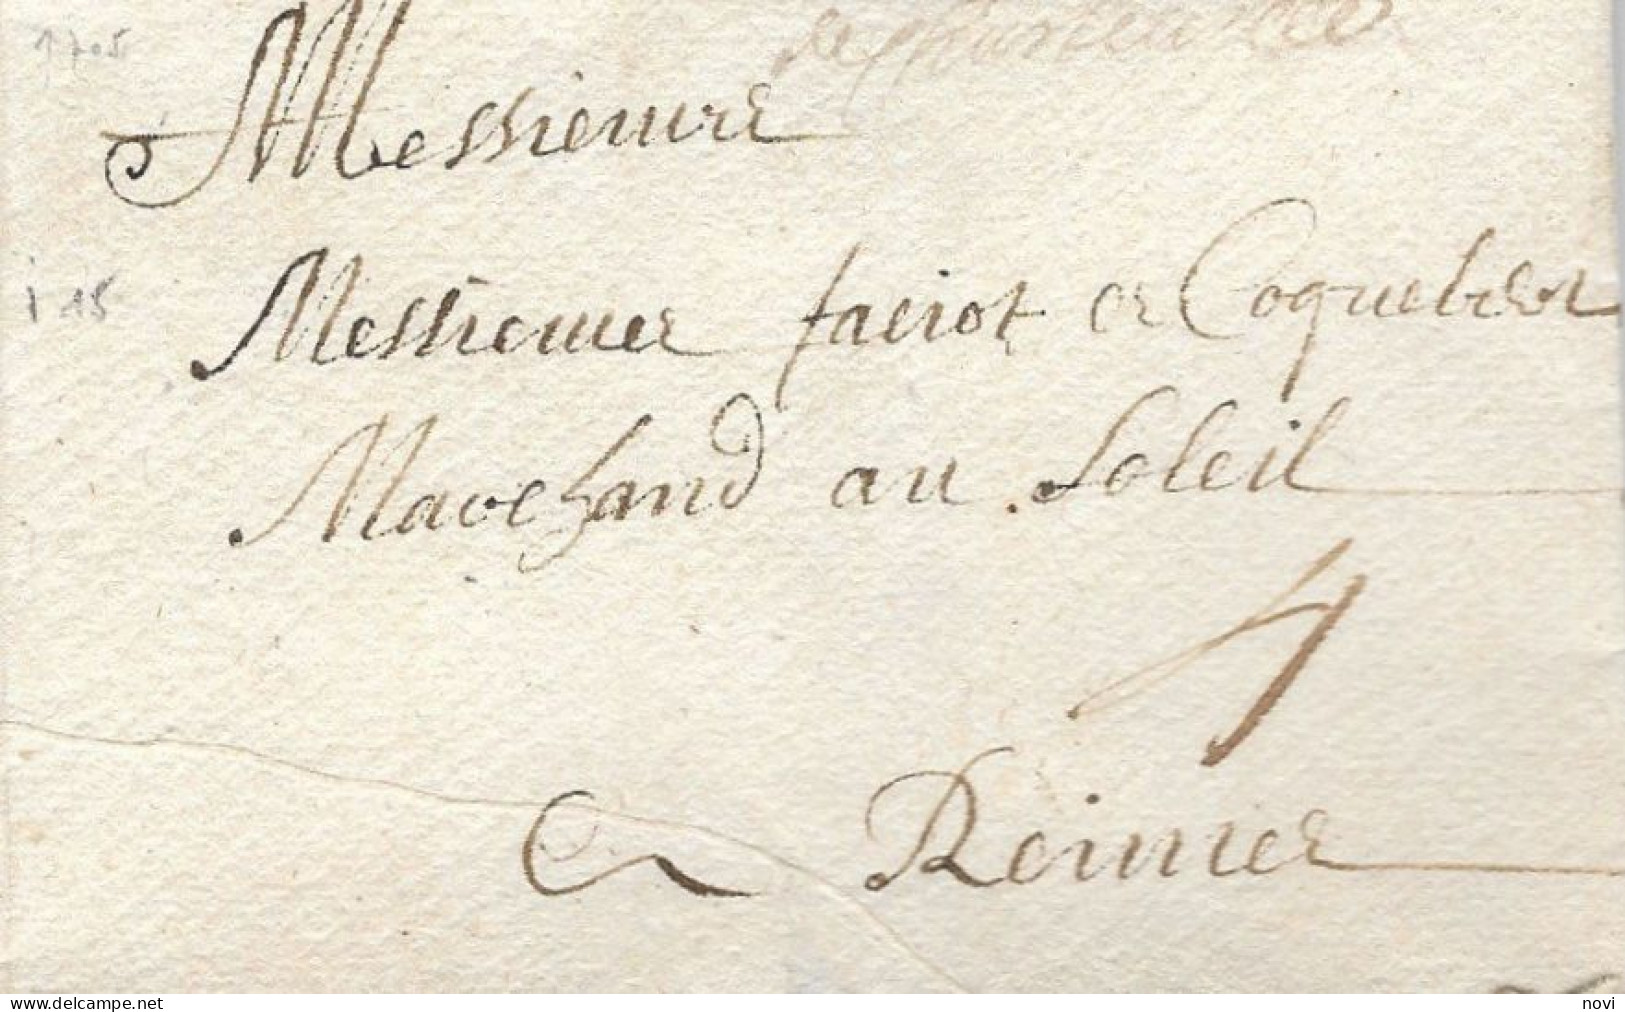 1705
Messieurs
115
Messieurs favrot et Coquebert
Marchand au Soleil
4
A Reims
www.delcampe.net
novi